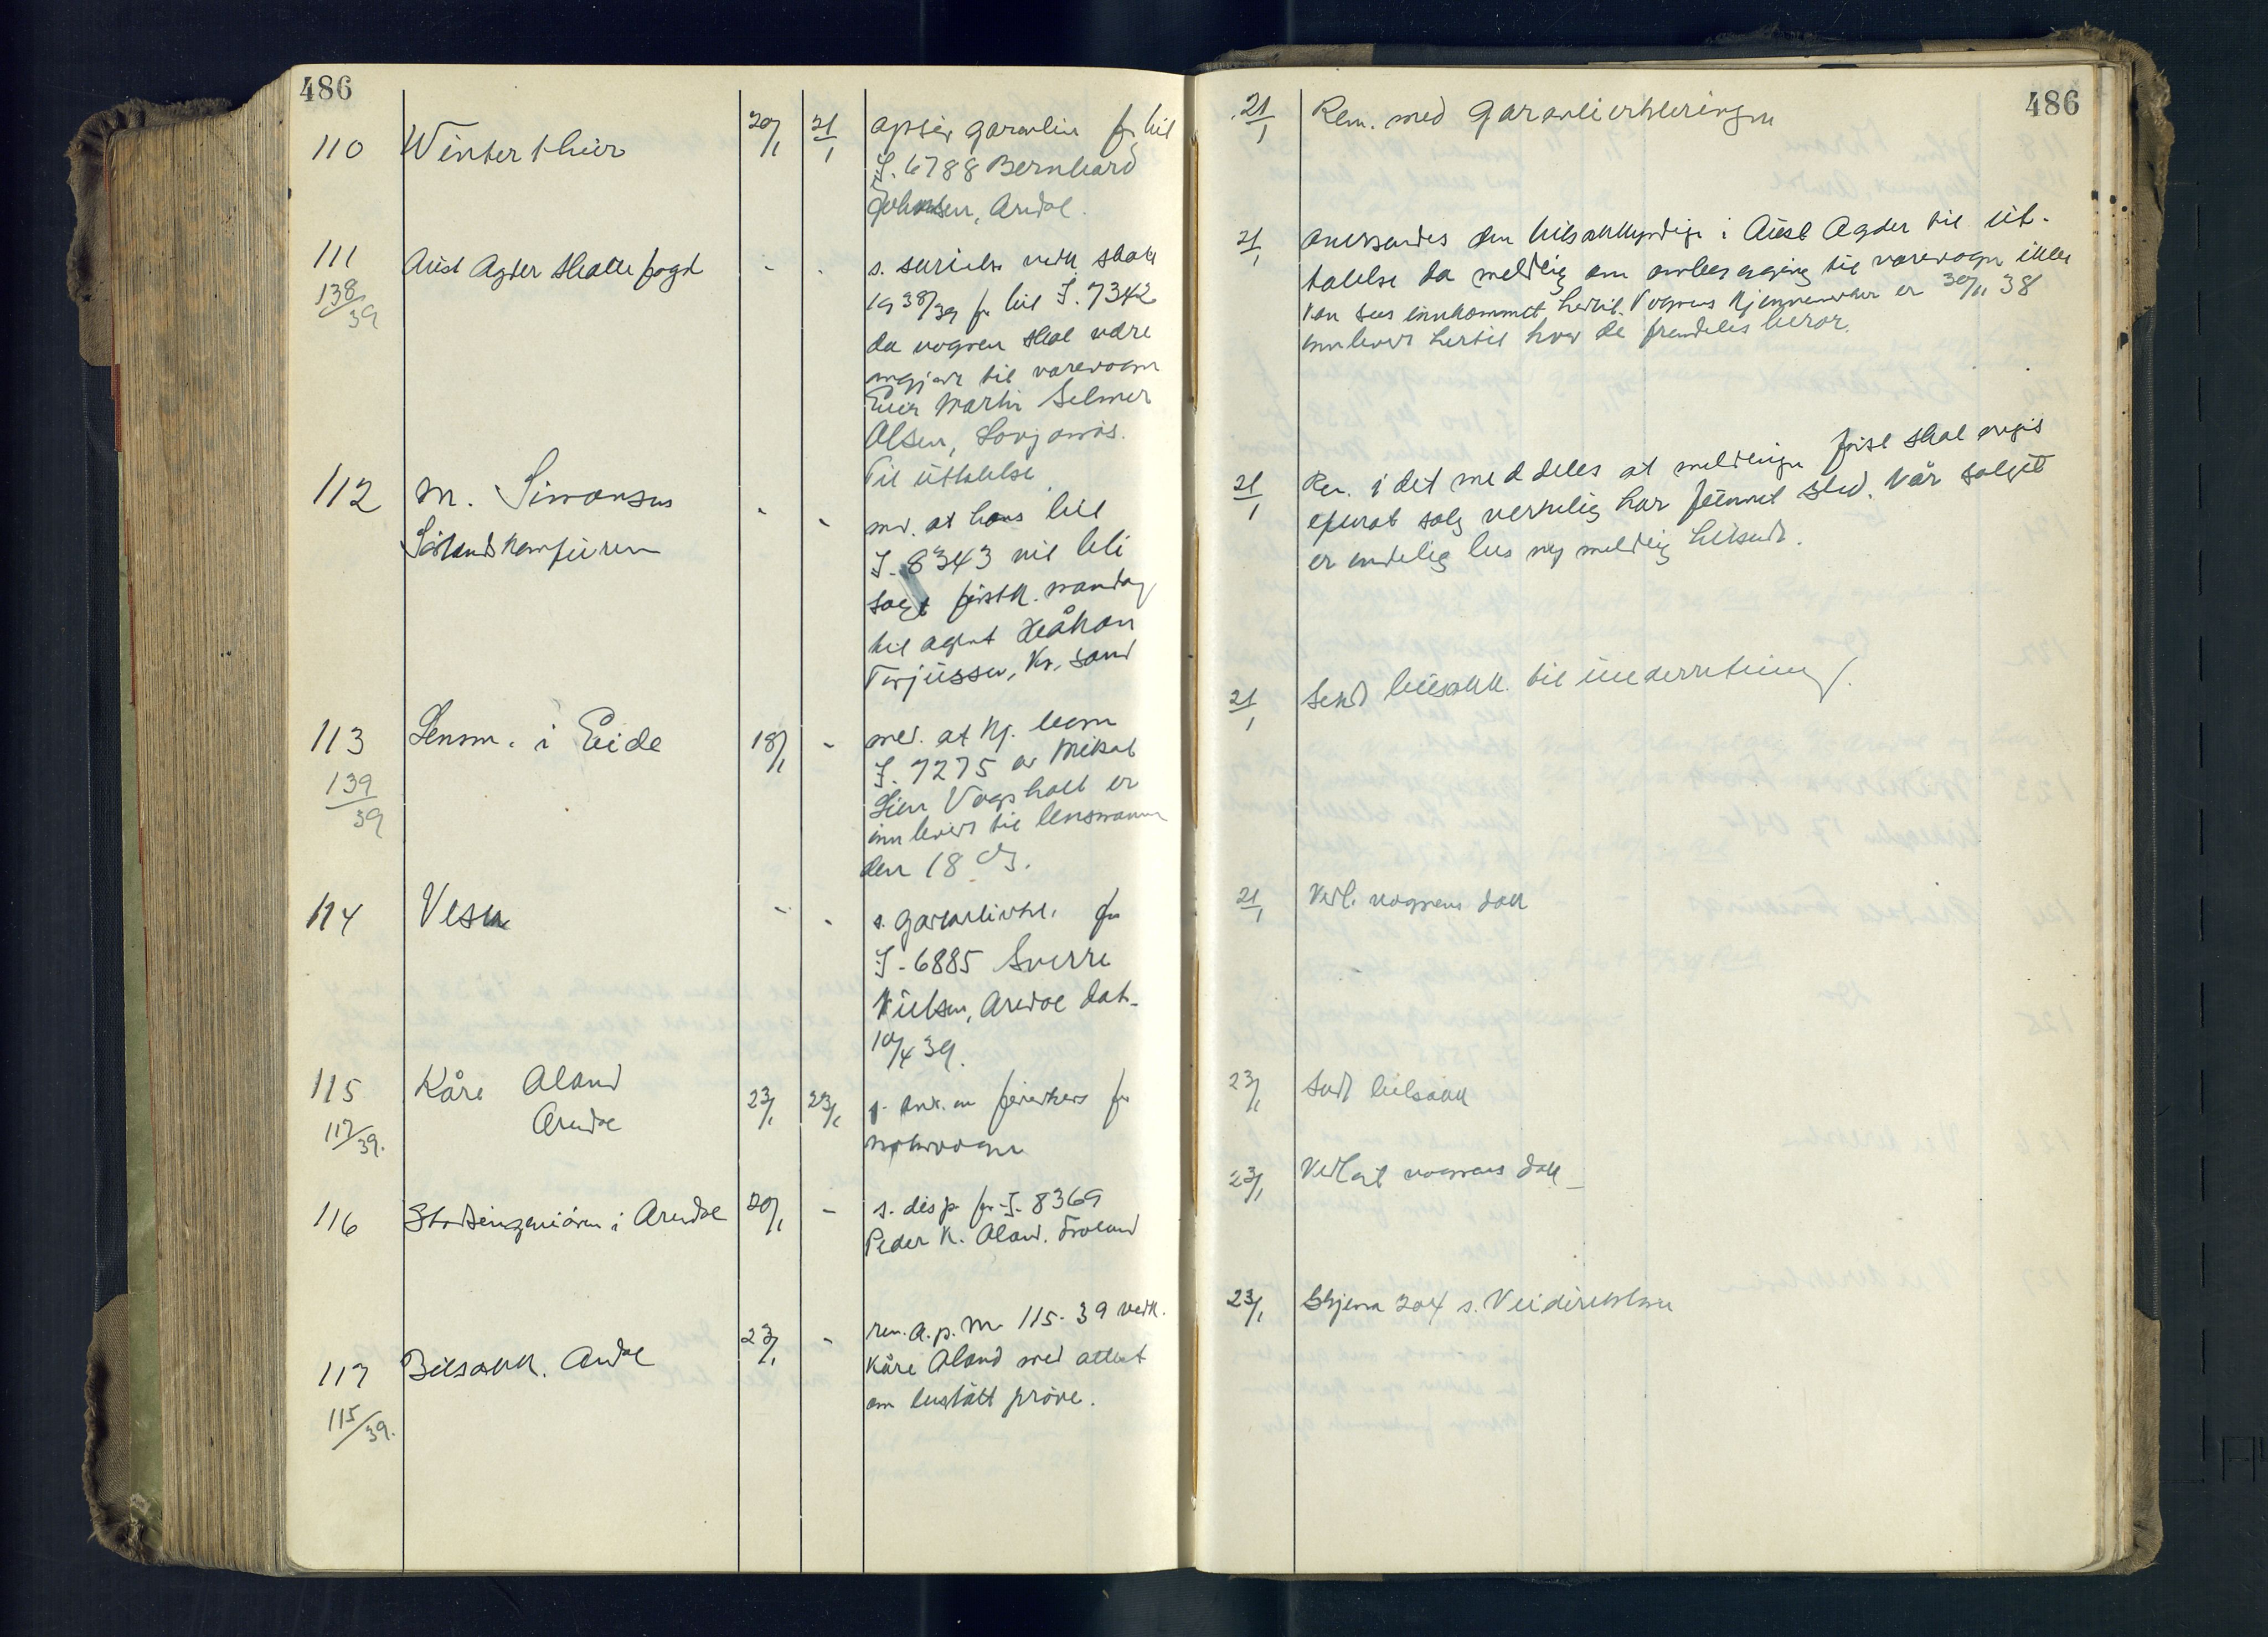 486
110 Winterthur 20/1 21/1 opsier garantien for bil
I. 6788 Bernhard
Johnsen, Arendal.
111 Aust Agder skattefogd - - s. skriv vedk. skatt
138/39
1938/39 for bil I. 7342
da vognen skal være
omgjort til varevogn
Eier Martin Selmer
Olsen, Songevås.
Til uttalelse
112 M. Simonsen - - med. at hans bil
Sørlandskonfüren
I. 8343 vil bli
solgt førstk. mandag
til agent Håkon
Terjussen, Kr. sand
113 Lensm. i Eide 18/1 - med. at kj. tegn
139/39
I. 7275 av Mikal
Lien Vågsholt er
innlevert til lensmannen
den 18 ds.
114 Vesta - - s. garantierkl. for
I-6885 Sverre
Nielsen, Arendal dat.
10/4 39.
115 Kåre Åland
Arendal 23/1 23/1 s. ank. om førerkort for
117/39.
motorvogn
116 Stadsingeniøren i Arendal 20/1 - s. disp. for I. 8369
Peder K. Åland. Froland
117 Bilsakk. Arendal 23/1 - ren. a.p.m. 115-39 vedk.
115/39.
Kåre Åland med attest
om bestått prøve.
486
21/1 Rem. med garantierkleringen
21/1 Oversendes den bilsakkyndige i Aust Agder til ut-
talelse da melding om ombygging til varevogn ikke
kan sees innkommet hertil. Vognens kjennemerker er 30/11 38
innlevert hertil hvor de fremdeles beror.
21/1 Ren. idet meddeles at meldingen først skal avgis
efterat salg virkelig har funnet sted. Når salget
er endelig bes ny melding tilsendt.
21/1 Sendt bilsakk. til underretning.
21/1 Vedl. vognens dok
23/1 Sendt bilsakk
23/1 Vedlagt vognens dok
23/1 Skjema 204 s. Veidirektøren